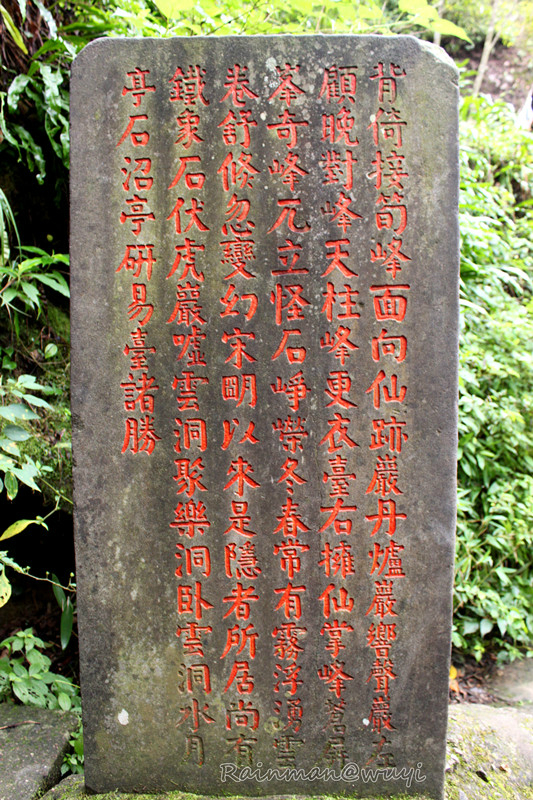 背倚接筍峰面向仙跡巖丹爐巖響聲巖左
顧晚對峰天柱峰更衣臺右擁仙掌峰蒼屏
峯奇峰兀立怪石崢嶸冬春常有霧浮湧雲
卷舒倏忽變幻宋明以來是隱者所居尚有
鐵象石伏虎巖噓雲洞聚樂洞臥雲洞水月
亭石沼亭研易臺諸勝
Rainman@wuyi